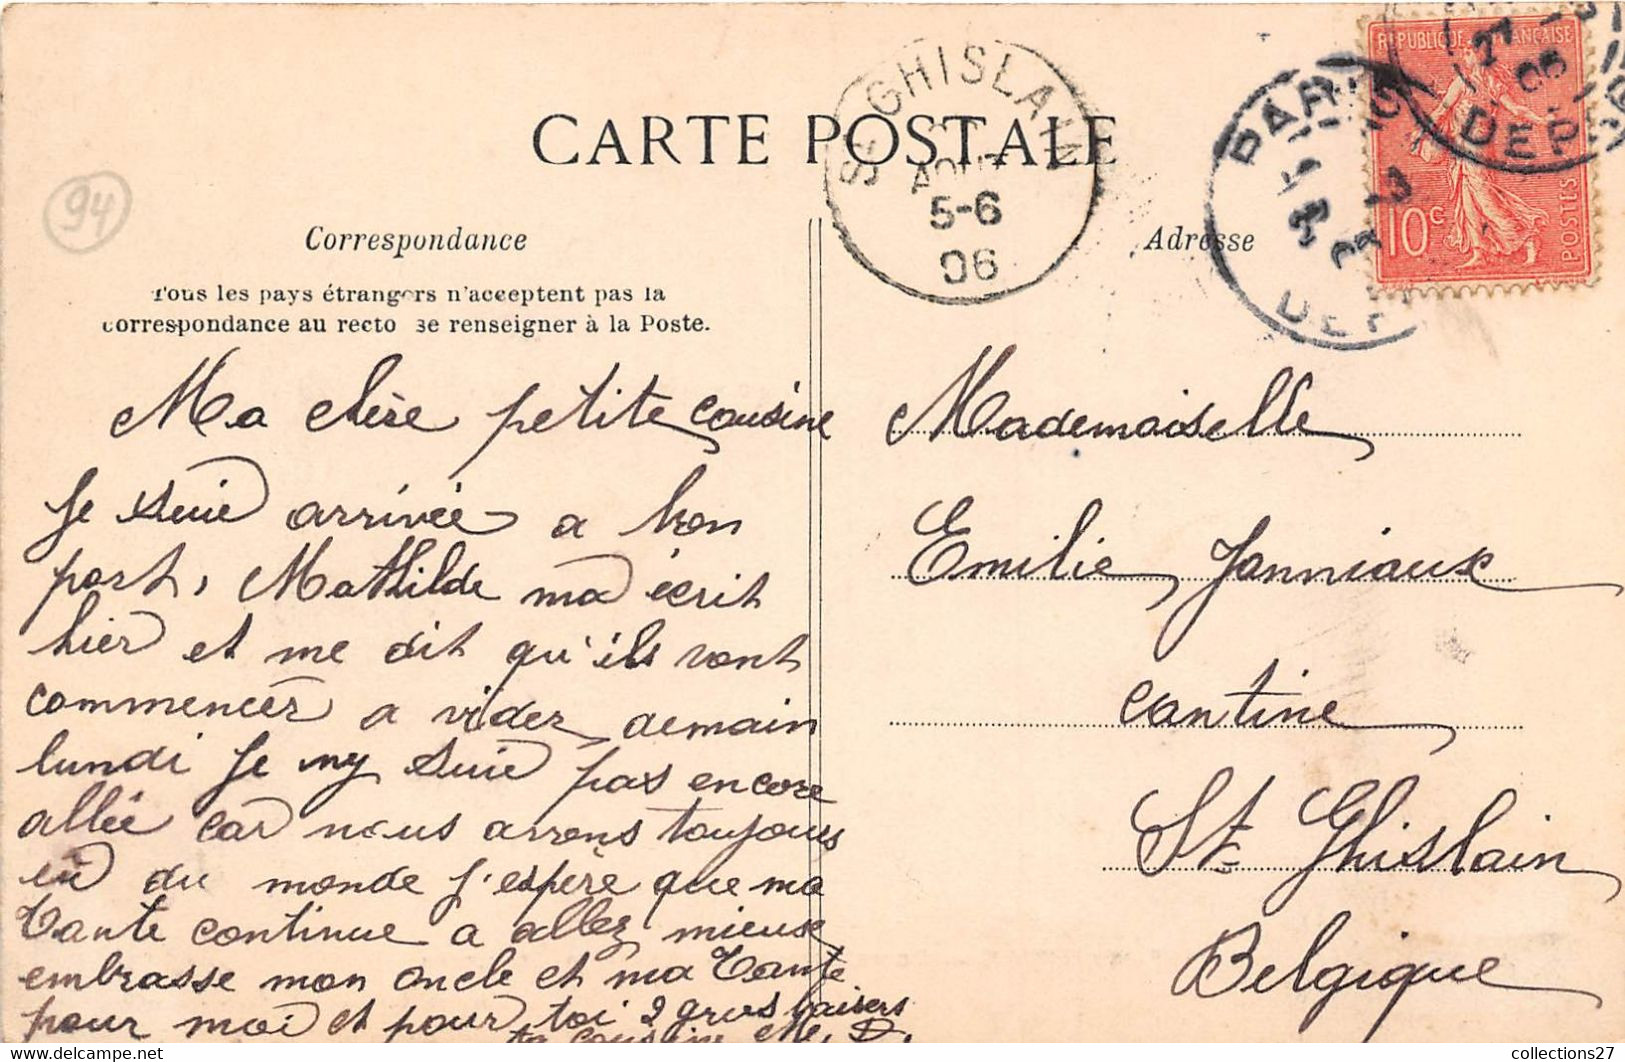 CARTE POSTALE
94
Correspondance
Tous les pays étrangers n'acceptent pas la
correspondance au recto se renseigner à la Poste.
Ma chère petite cousine
Je suie arrivée a bon
port, Mathilde ma écrit
hier et me dit qu'ils vont
commencer a vider demain
lundi Je ny suie pas encore
allée car nous avons toujours
eu du monde J'espère que ma
Tante continue a allez mieux
embrasse mon oncle et ma Tante
pour moi et pour toi 2 gros baisers
ta cousine M. D.
ST GHISLAIN
AOUT
5-6
06
Adresse
REPUBLIQUE FRANÇAISE
10c
POSTES
PARIS
DEP
DEP
Mademoiselle
Emilie Janniaux
cantine
St Ghislain
Belgique
collections27